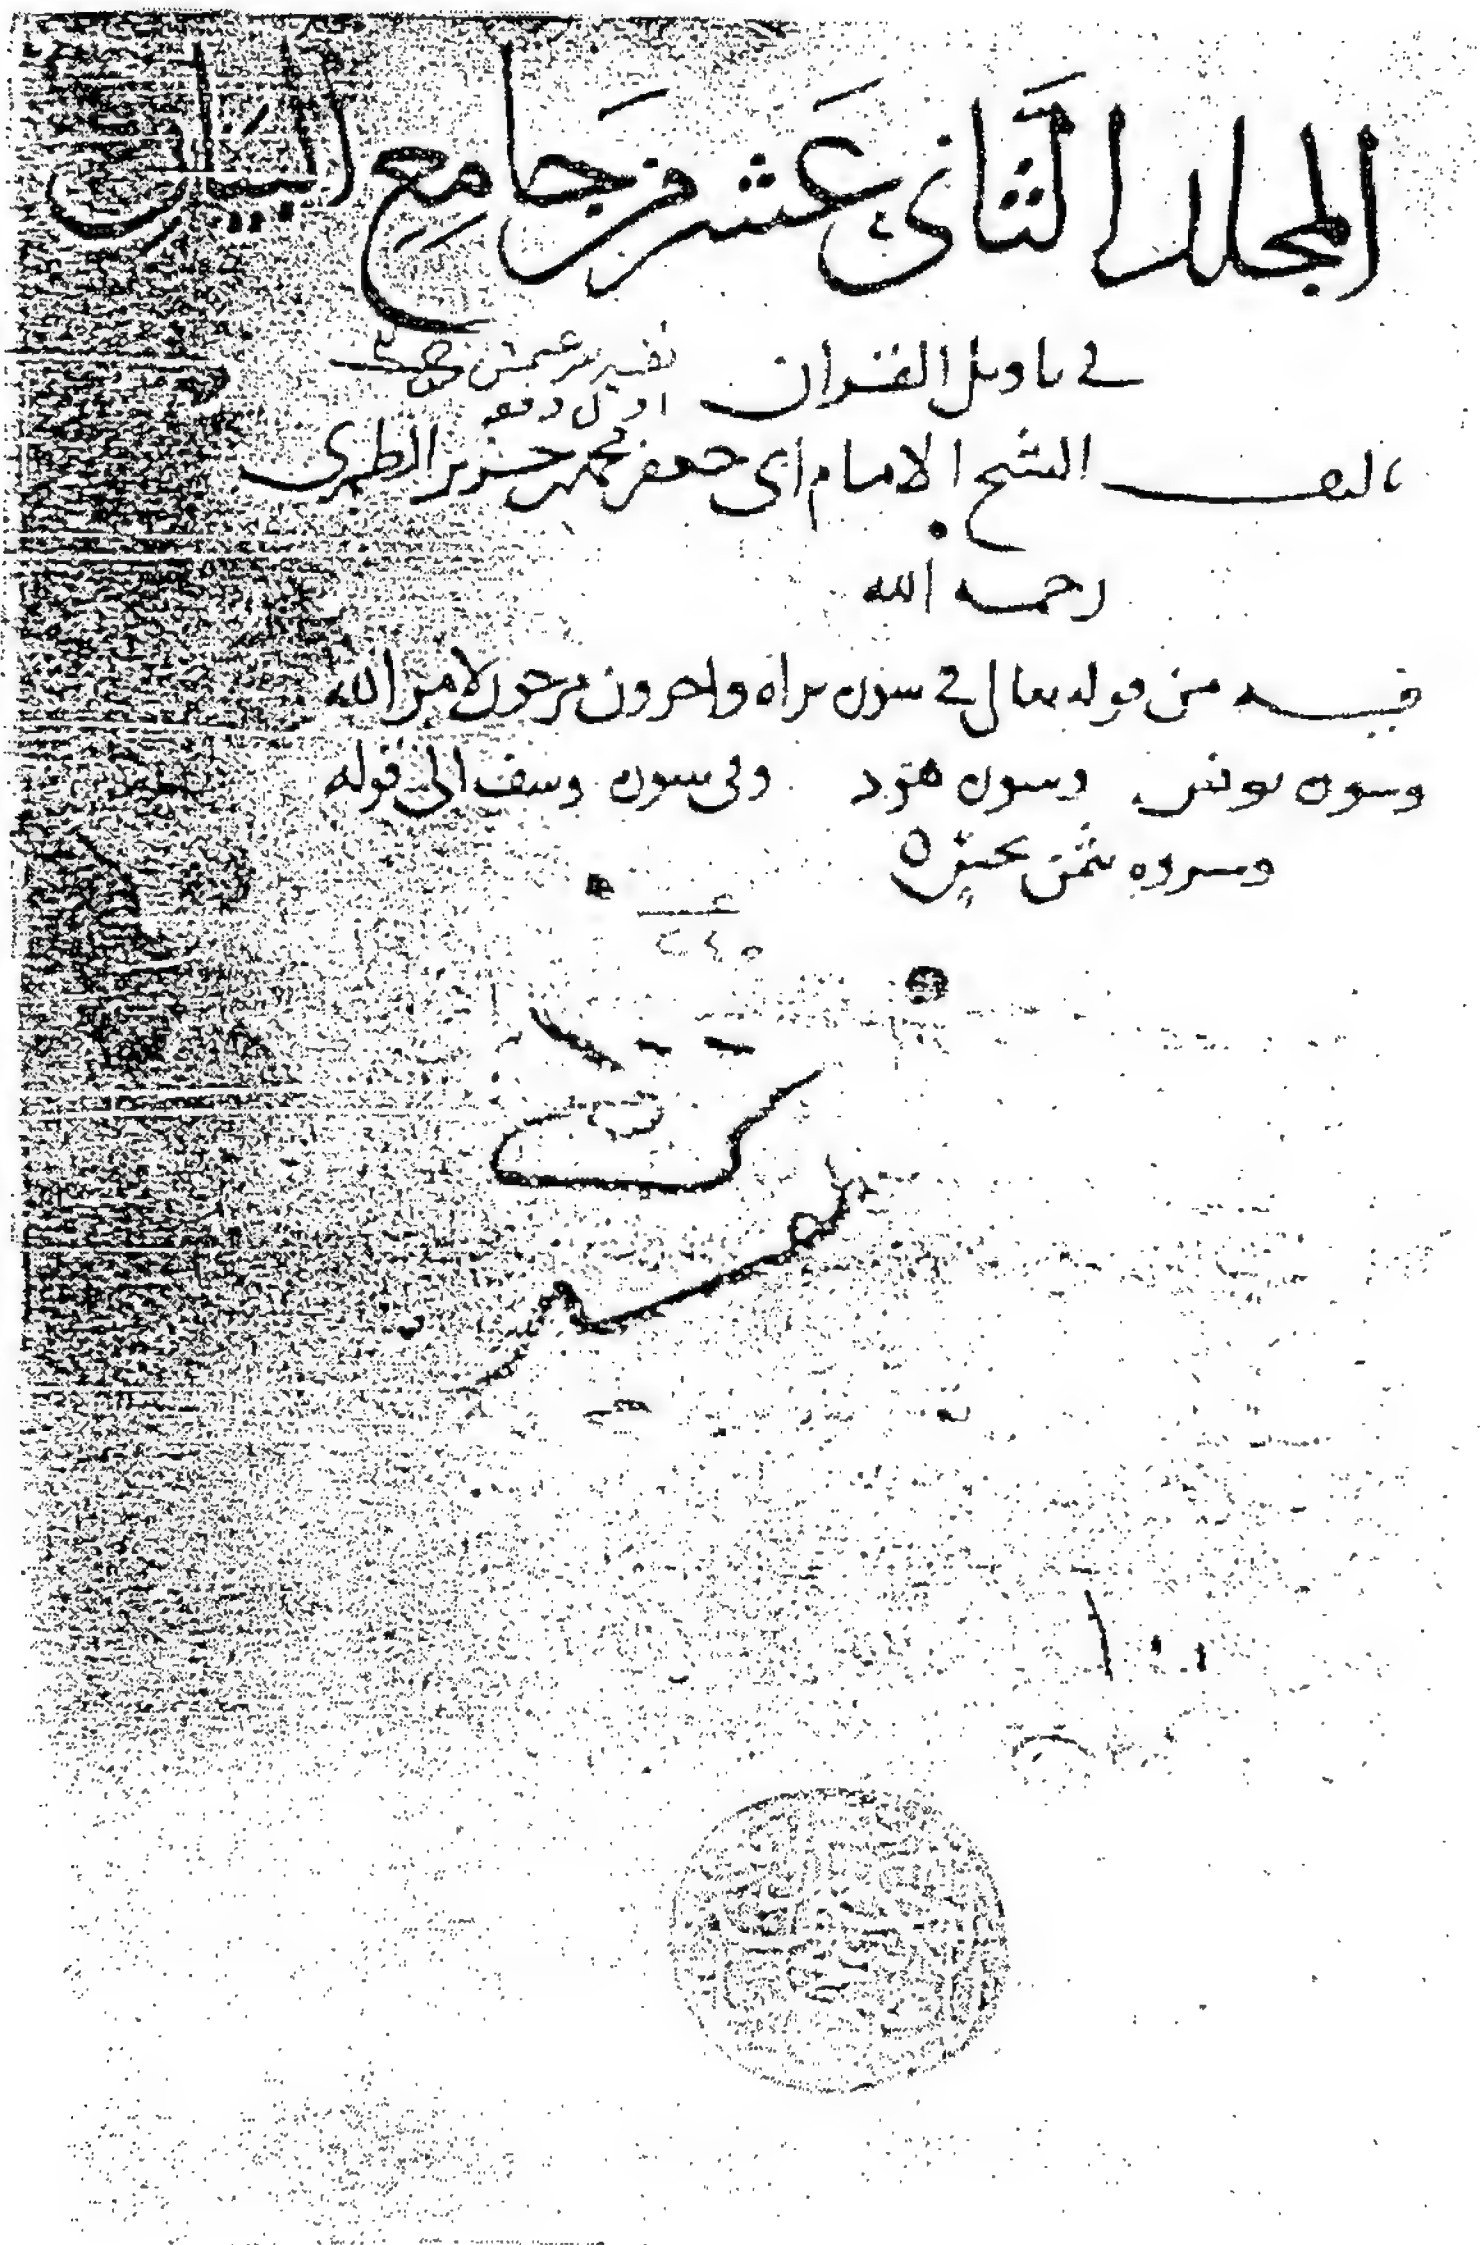 المجلد الثاني عشر من جامع البيان
في تاويل القران
تاليف الشيخ الامام ابي جعفر محمد بن جرير الطبري
رحمه الله
فيه من قوله تعالى في سورة براه واخرون مرجون لامر الله
وسورة يونس وسورة هود وفي سورة يوسف الى قوله
وشروه بثمن بخس
١٠٠